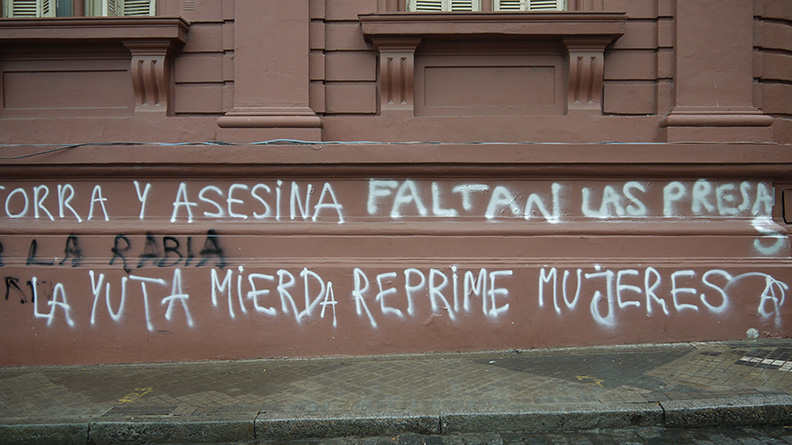 TORRA Y ASESINA FALTAN LAS PRESAS
LA RABIA
LA YUTA MIERDA REPRIME MUJERES